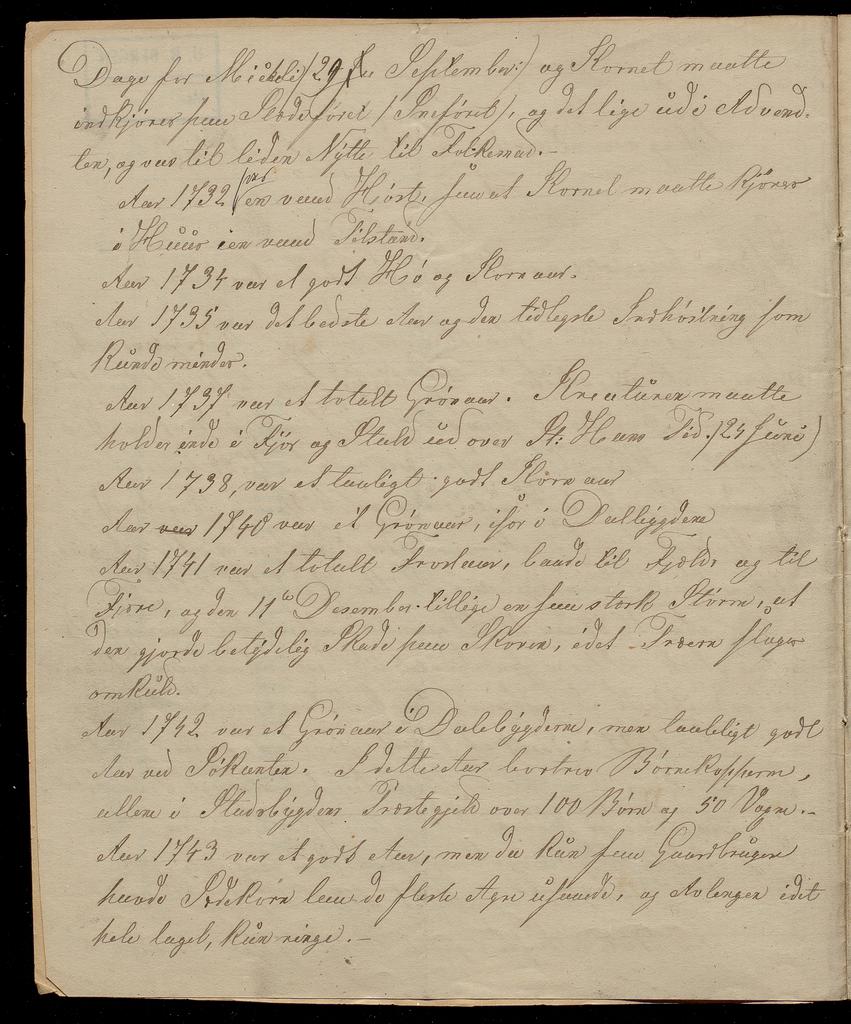 Dage før Mickeli (29de September) og Kornet maatte
indkjøres paa Slædeføret (Sneføret), og det lige ud i Advend-
ten, og var til liden Nytte til Folkemad.-
Aar 1732 var en vaad Høst, saa at Kornet maatte kjøres
i Huus i en vaad Tilstand.
Aar 1734 var et godt Hø og Korn aar.
Aar 1735 var det bedste Aar og den tidligste Indhøstning som
kunde mindes.
Aar 1737 var et totalt Grønaar. Kreaturen maatte
holdes inde i Fjøs og Stald ud over St: Hans Tid. (24 Juni)
Aar 1738, var et taaligt godt Korn aar
Aar var 1740 var et Grønaar, især i Dalbygdene
Aar 1741 var et totalt Frostaar, baade til Fjelds og til
Fjære, og den 11te Desember tillige en saa stærk Storm, at
den gjorde betydelig Skade paa Skoven, idet Træern sloges
omkuld.
Aar 1742 var et Grønaar i Dalebygderne, men taaleligt godt
Aar ved Søkanten. I dette Aar bortrev Børnekopperne,
allene i Stadsbygdens Præstegjeld over 100 Børn og 50 Vogne.-
Aar 1743 var et godt Aar, men da kun faa Gaardbrugere
havde Sædekorn laae de fleste Agre usaaede, og Avlingen i det
hele taget, kun ringe.-